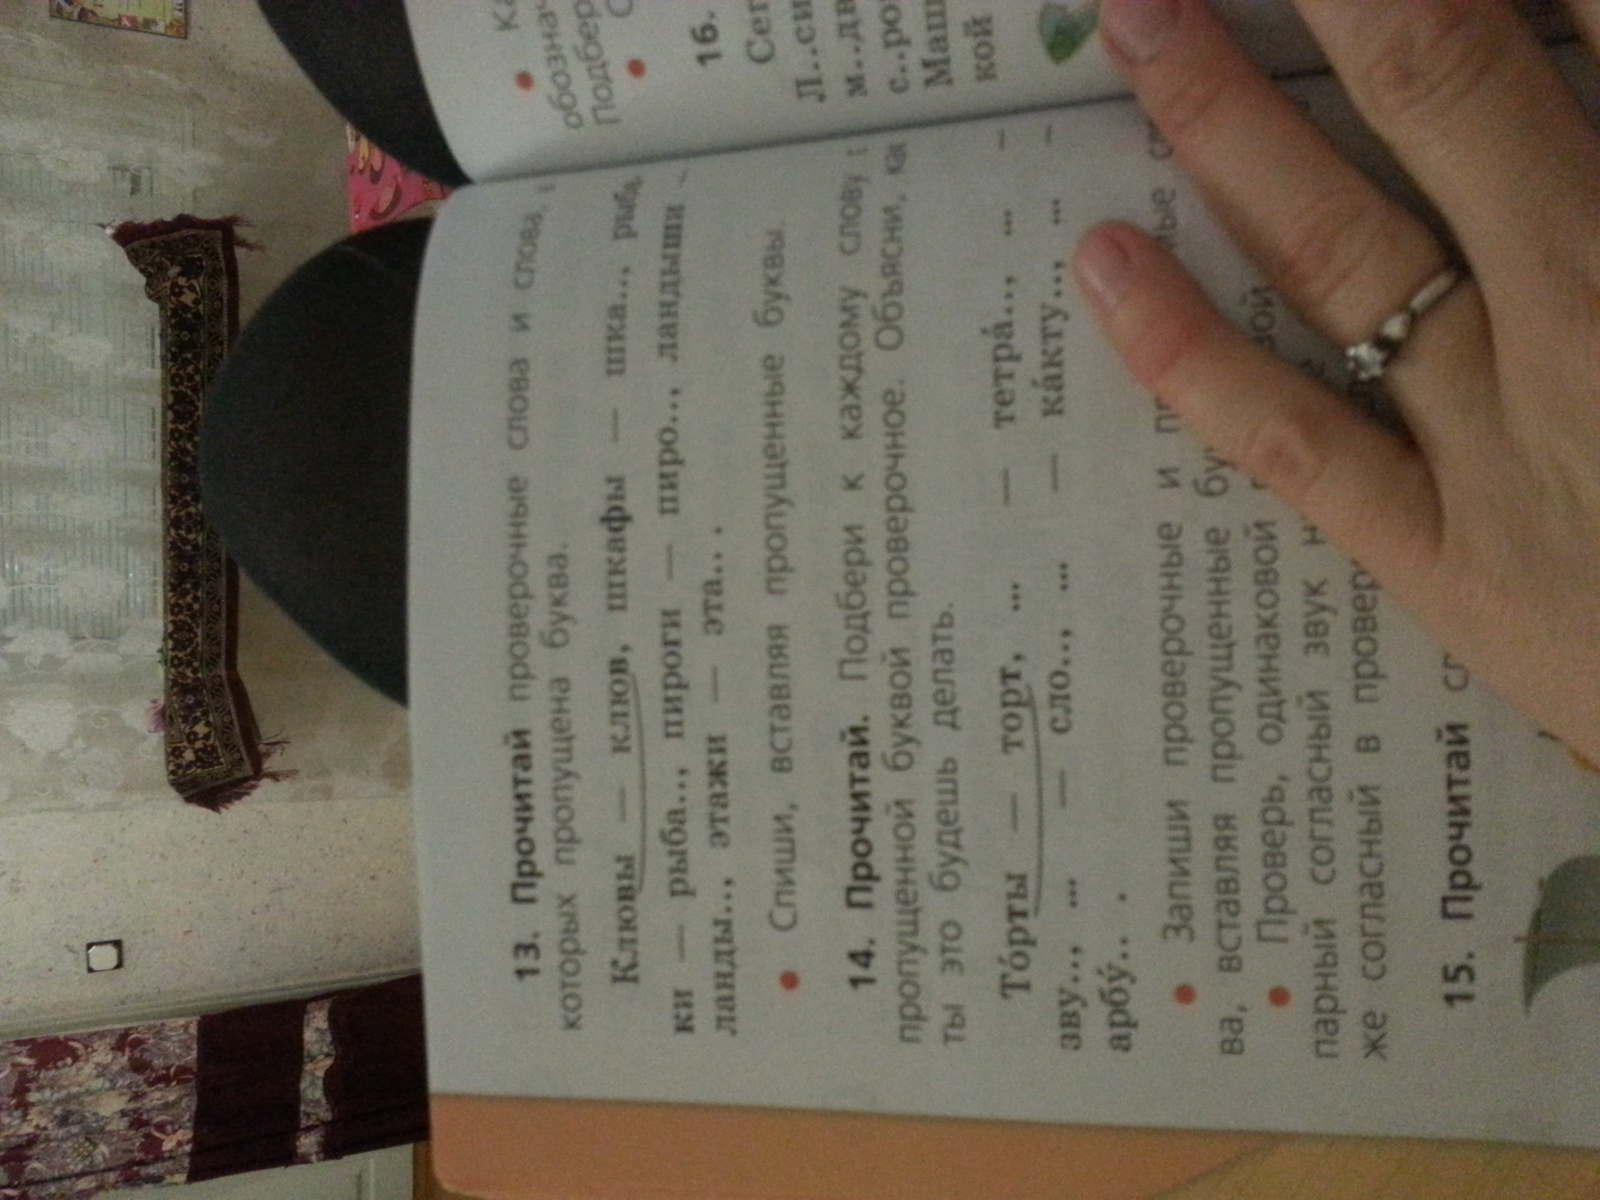 13. Прочитай проверочные слова и слова,
которых пропущена буква.
Клювы — клюв, шкафы — шка.., рыб
ки — рыба.., пироги — пиро.., ландыши
ланды.., этажи — эта.. .
• Спиши, вставляя пропущенные буквы.
14. Прочитай. Подбери к каждому слову
пропущенной буквой проверочное. Объясни, ка
ты это будешь делать.
То́рты — торт, ... — тетра́.., ... –
зву.., ... — сло.., ... — ка́кту.., ... –
арбу́.. .
• Запиши проверочные и
ва, вставляя пропущенные
• Проверь, одинаковой
парный согласный звук
же согласный в
15. Прочитай
• Ка
обознач
Подбер
• С
16.
Сер
Л..си
м..дв
с..ро
Маш
кой